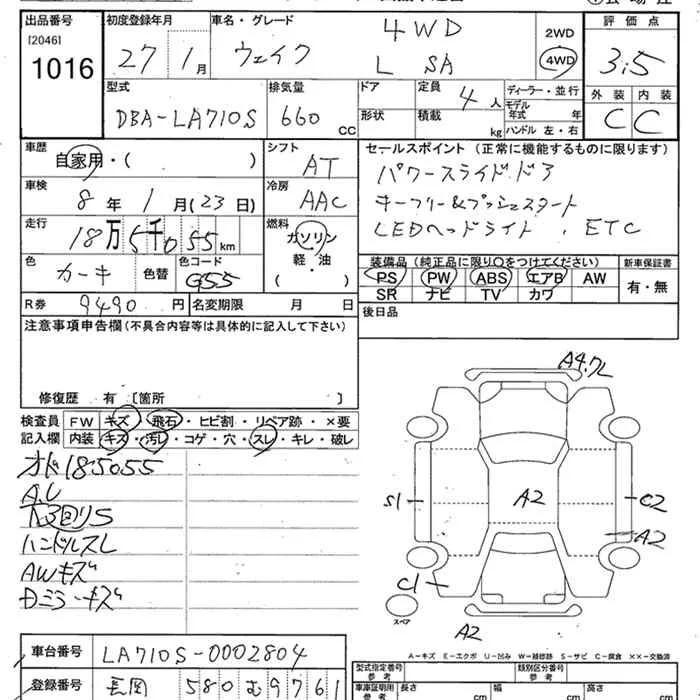 出品番号 初度登録年月 車名・グレード 評価点
[2046] 1016 27 1月 ウェイク 4WD L SA 2WD 4WD 3.5
型式 排気量 ドア 定員 ディーラー・並行 外装 内装
DBA-LA710S 660 cc 形状 積載 4人 kg モデル年式 年 ハンドル 左・右 C C
車歴 自家用・( ) シフト AT セールスポイント (正常に機能するものに限ります)
パワースライドドア
車検 8年 1月(23日) 冷房 AAC キーフリー&プッシュスタート
走行 18万5千055km 燃料 ガソリン 軽・油 ( ) LEDヘッドライト. ETC
色 カーキ 色替 色コード G55 装備品 (純正品に限り○をつけてください) 新車保証書
PS PW ABS エアB AW 有・無
SR ナビ TV カワ
R券 9490円 名変期限 月 日 後日品
注意事項申告欄(不具合内容等は具体的に記入して下さい)
修復歴 有 [箇所 ]
検査員 FW キズ・飛石・ヒビ割・リペア跡・×要
記入欄 内装 キズ・汚レ・コゲ・穴・スレ・キレ・破レ
185055
ハンドルスレ
AWキズ
Dミラーキズ
A4.7L
S1 A2 C2
A2
C1
スペア
A2
A-キズ E-エクボ U-凹み W-補修跡 S-サビ C-腐食 ××-交換済
車台番号 LA710S-0002804
登録番号 長岡 580 む 9761
型式指定番号 参考 類別区分番号 参考
車庫証明用 参考 長さ cm 幅 cm 高さ cm